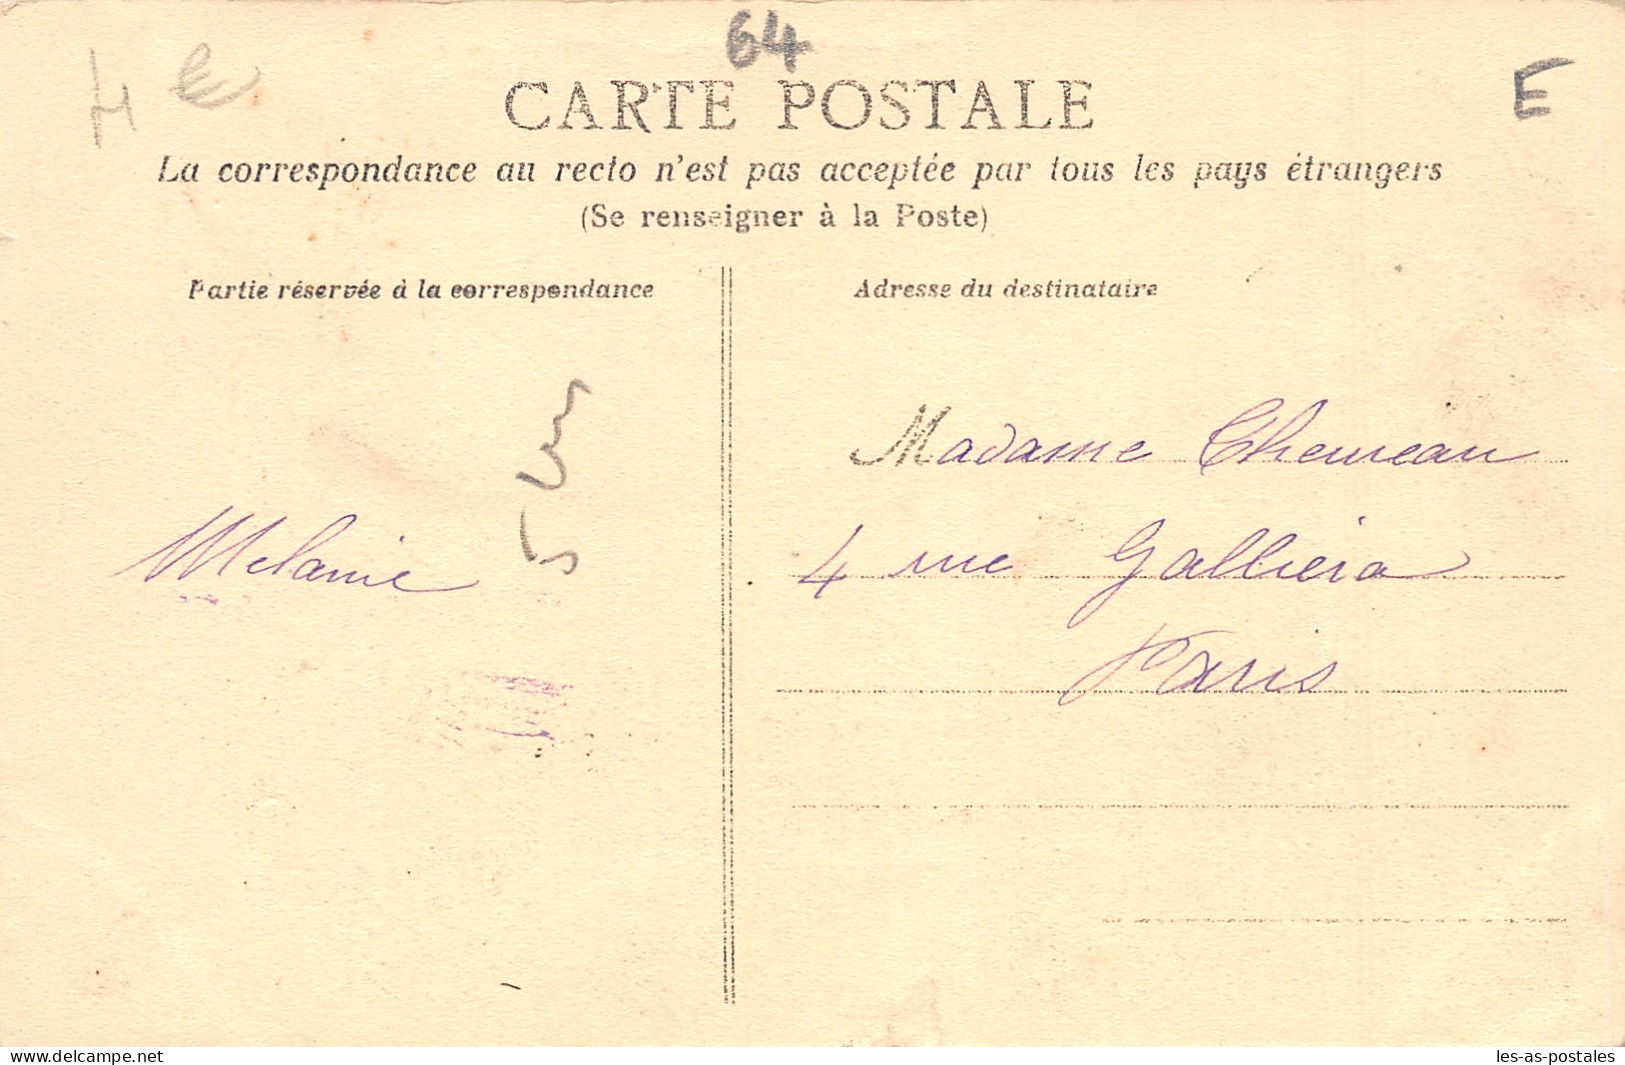 64
E
CARTE POSTALE
La correspondance au recto n'est pas acceptée par tous les pays étrangers
(Se renseigner à la Poste)
Partie réservée à la correspondance
Adresse du destinataire
Melanie
Madame
4 rue Galliera
Paris
delcampe.net
les-as-postales